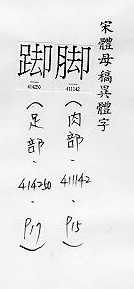 宋體母稿異體字
脚
411142
(肉部.411142.P15)
踋
414250
(足部.414250.P17)